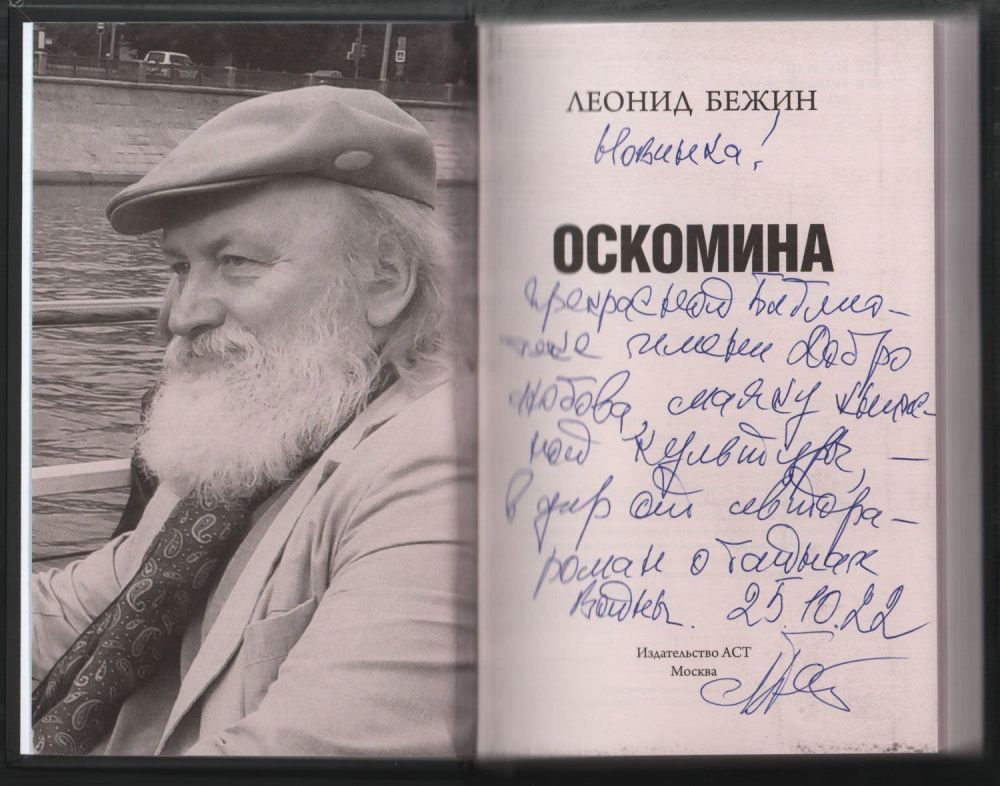 ЛЕОНИД БЕЖИН
Новинка!
ОСКОМИНА
Прекрасной Библио-
теке имени Добро
любова, маяку книж-
ной культуры, –
в дар от автора –
роман о тайнах
войны. 25.10.22
Издательство АСТ
Москва